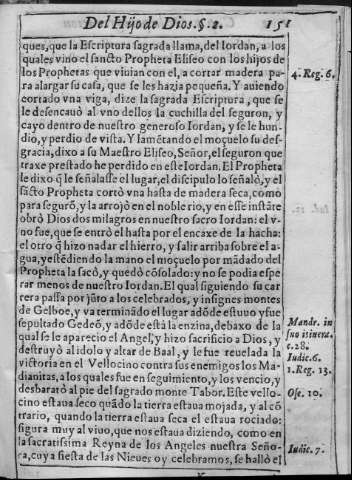 Del Hijo de Dios. §. 2. 151
ques, que la Escriptura sagrada llama, del Iordan, a los
quales vino el sancto Propheta Eliseo con los hijos de
los Prophetas que viuian con el, a cortar madera pa-
ra alargar su casa, que se les hazia pequeña. Y auiendo
cortado vna viga, dize la sagrada Escriptura, que se
le desencauò al vno dellos la cuchilla del seguron, y
cayo dentro de nuestro generoso Iordan, y se le hun-
dio, y perdio de vista. Y lamẽtando el moçuelo su des-
gracia, dixo a su Maestro Eliseo, Señor, el seguron que
traxe prestado he perdido en este Iordan. El Propheta
le dixo q̃ le señalasse el lugar, el discipulo lo señalò, y el
sãcto Propheta cortò vna hasta de madera seca, como
para segurõ, y la arrojò en el noble rio, y en esse instãte
obrò Dios dos milagros en nuestro sacro Iordan: el v-
no fue, que se entrò el hasta por el encaxe de la hacha:
el otro q̃ hizo nadar el hierro, y salir arriba sobre el a-
gua, y estẽdiendo la mano el moçuelo por mãdado del
Propheta la sacò, y quedò cõsolado: y no se podia espe
rar menos de nuestro Iordan. El qual siguiendo su car
rera passa por jũto a los celebrados, y insignes montes
de Gelboe, y va terminãdo el lugar adõde estuuo y fue
sepultado Gedeõ, y adõde està la enzina, debaxo de la
qual se le aparecio el Angel, y hizo sacrificio a Dios, y
destruyò al idolo y altar de Baal, y le fue reuelada la
victoria en el Vellocino contra sus enemigos los Ma-
dianitas, a los quales fue en seguimiento, y los vencio, y
desbaratò al pie del sagrado monte Tabor. Este vello-
cino estaua seco quãdo la tierra estaua mojada, y al cõ
trario, quando la tierra estaua seca el estaua rociado:
figura muy al viuo, que nos estaua diziendo, como en
la sacratissima Reyna de los Angeles nuestra Seño-
ra, cuya fiesta de las Nieues oy celebramos, se hallò el
4. Reg. 6.
Mandr. in
suo itinera.
c. 28.
Iudic. 6.
1. Reg. 13.
Ose. 10.
Iudic. 7.